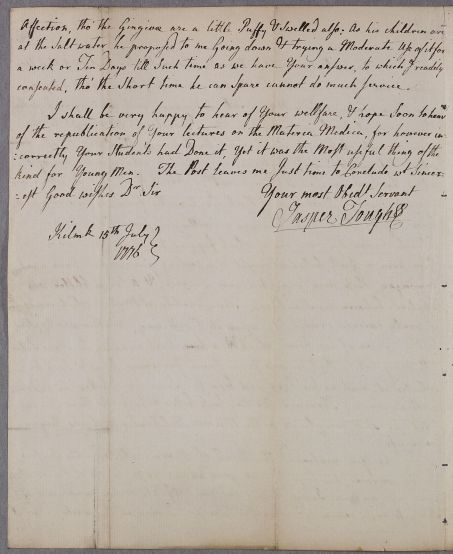 Affection, tho' the Gingivæ are a little Puffy & Swelled also: As his children are
at the Salt water he proposed to me Going down & trying a Moderate Use of it for
a week or Ten Days till Such time as we have Your answer, to which I readily
consented, tho' the Short time he can Spare cannot do much Service.
I shall be very happy to hear of Your wellfare, & hope Soon to hear
of the republication of Your lectures on the Materia Medica, for however in
:correctly Your Students had Done it, Yet it was the Most useful thing of the
kind for Young Men. The Post leaves me Just time to Conclude wt Sincer:
:est Good wishes Dr Sir
Your most Obedt Servant
Jasper Tough
Kilmk 15th July
1776